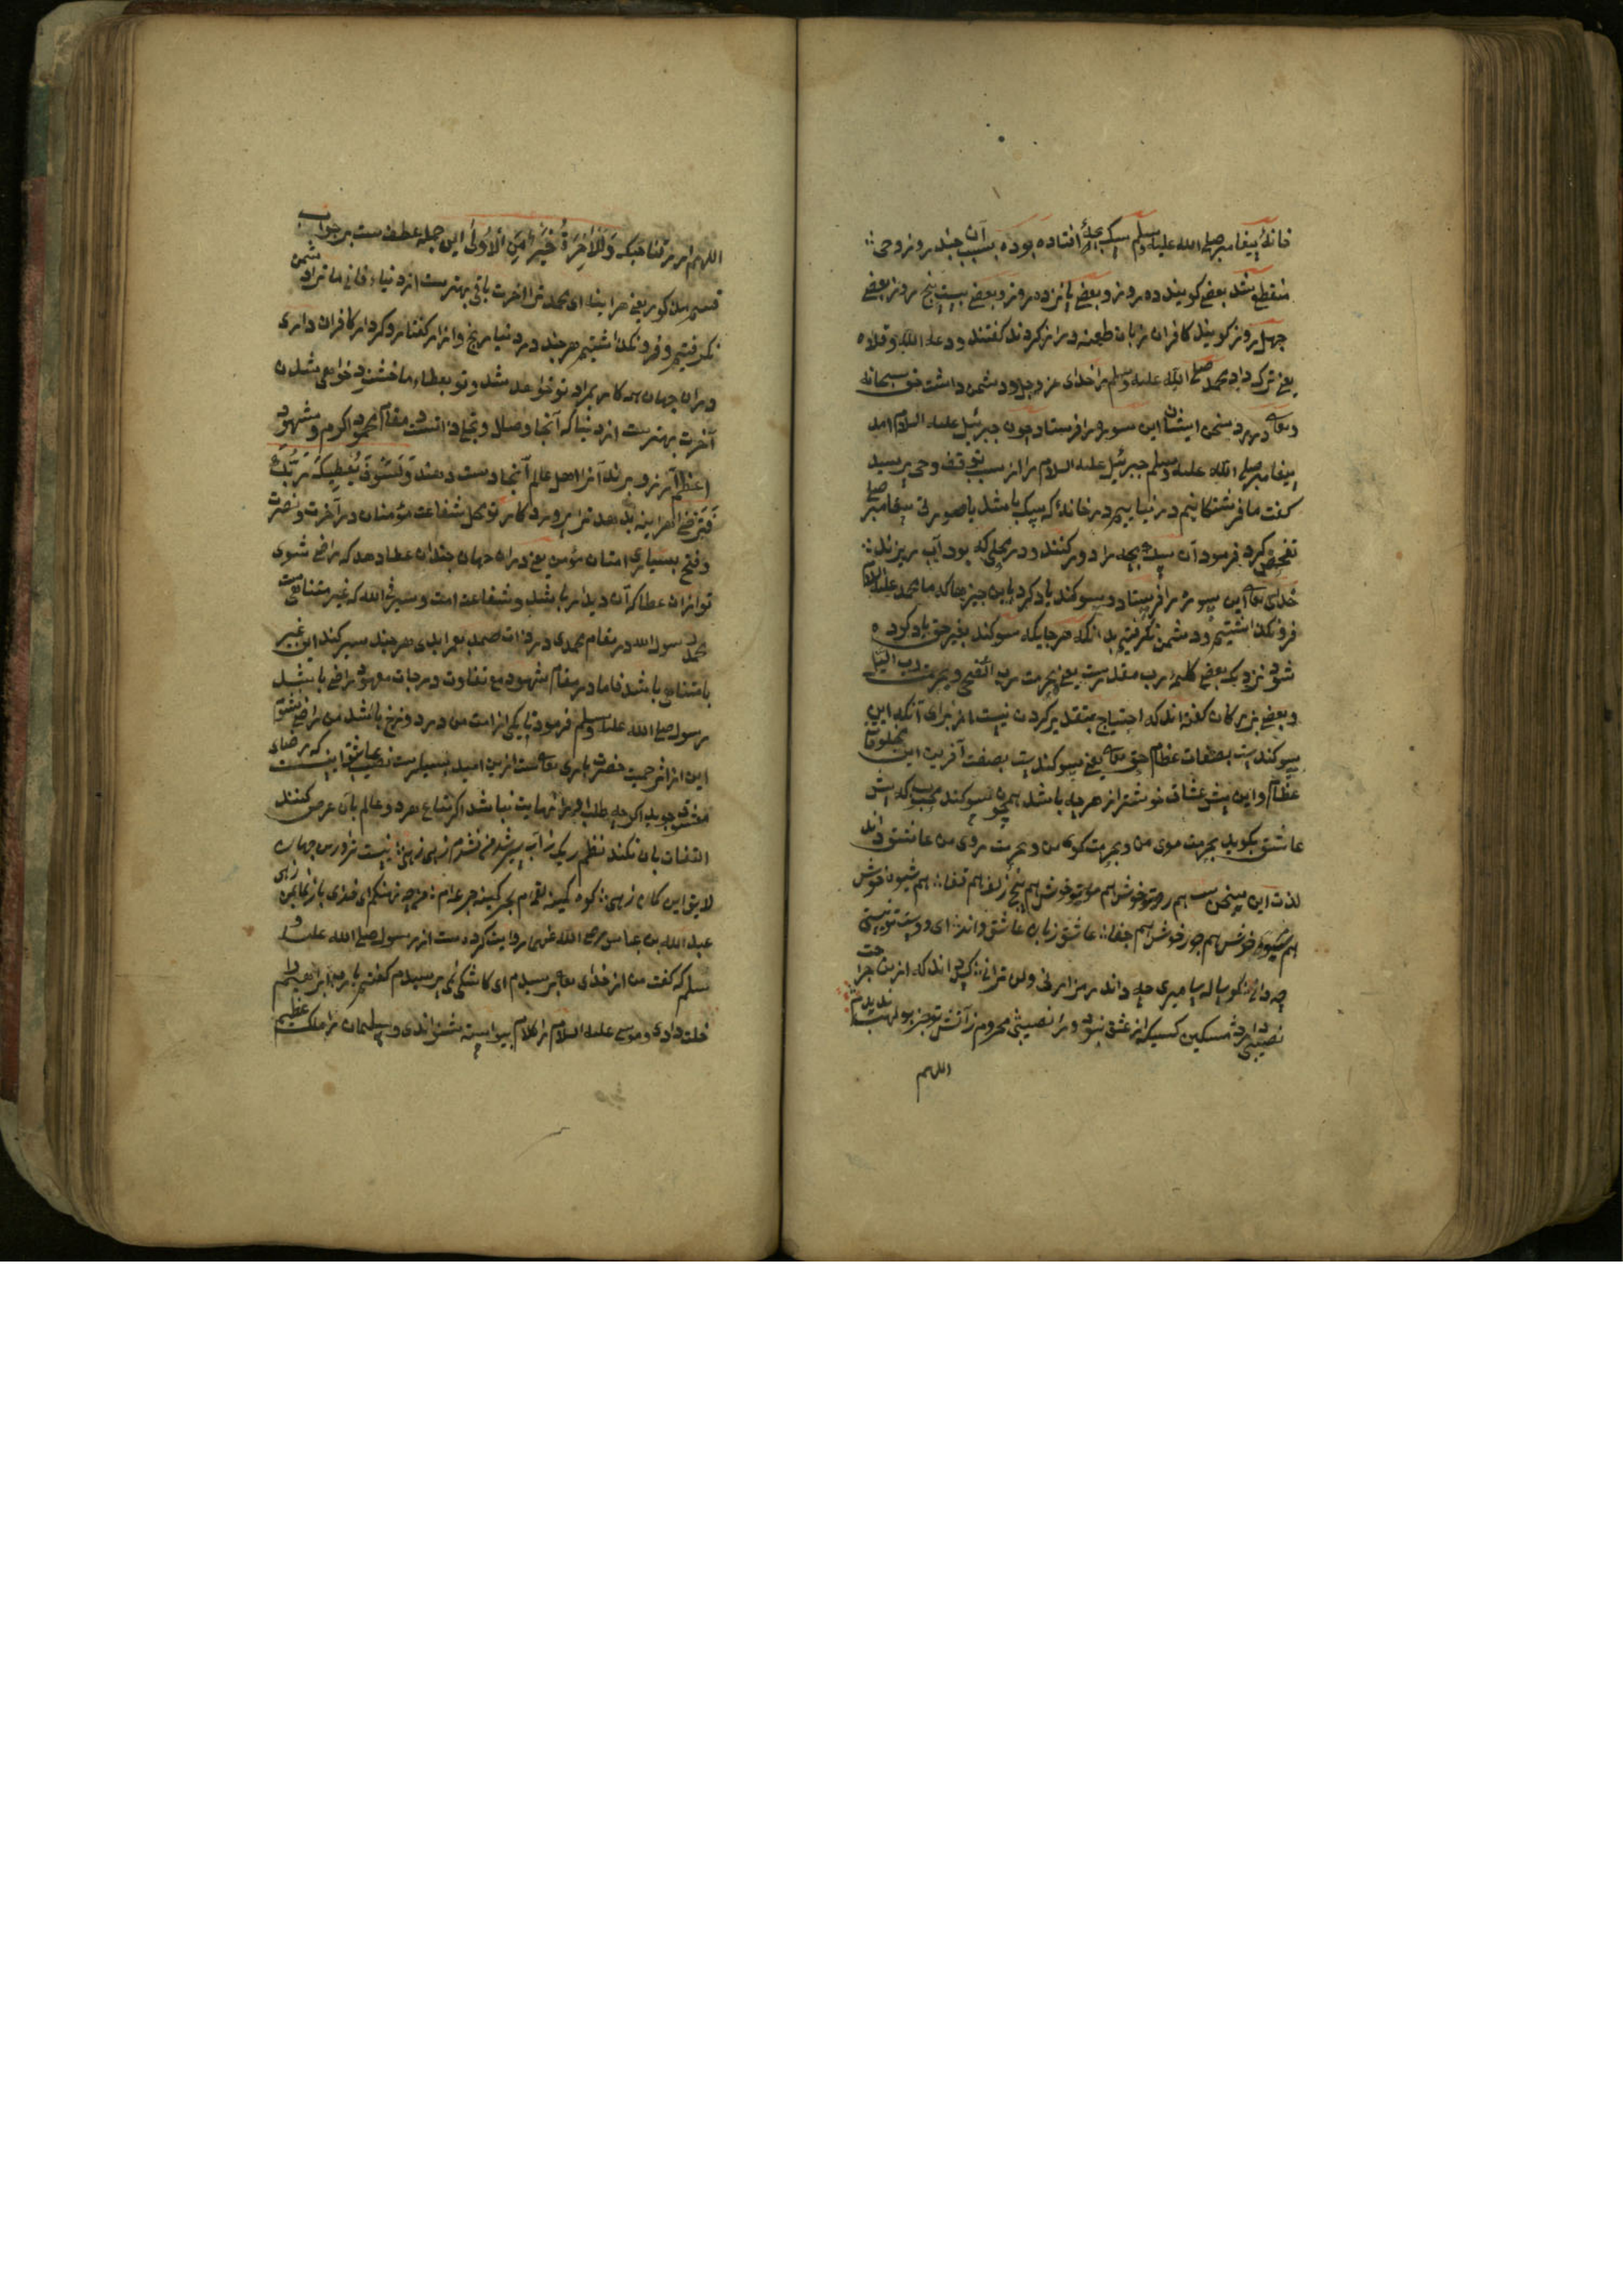 خانهٔ پیغامبر صلی الله علیه وسلم سک بچهٔ افتاده بوده بسبب آن چند روز وحی
منقطع شد بعضی کویند ده روز و بعضی پانزده روز و بعضی بیست پنج روز بعضی
چهل روز کویند کافران زبان طعنه دراز کردند کفتند ودعه الله وقلاه
یعنی ترک داد محمد صلی الله علیه وسلم را خدای عز وجل و دشمن داشت حق سبحانه
وتعالی در رد سخن ایشان این سوره را فرستاد چون جبرئیل علیه السلام امد
پیغامبر صلی الله علیه وسلم جبرئیل علیه السلام را از سبب توقف وحی پرسید
کفت ما فرشتکانیم در نیاییم در خانهٔ که سک باشد یا صورتی پیغامبر صلی
تفحص کرد فرمود آن سک بچه را دور کنند و در محلی که بود آب ریزند
خدای تعالی این سوره را فرستاد و سوکند یاد کرد باین چیزها که ما محمد علیه السلام
فرو نکذاشتیم و دشمن نکرفتیم بدانکه هر جایکه سوکند بغیر حق یاد کرده
شود نزدیک بعضی کلمهٔ رب مقدرست یعنی بحرمت رب الضحی وبحرمت رب اللیل
و بعضی بزرکان کفته اند که احتیاج بتقدیر کردن نیست از برای آنکه این
سوکندیست بصفات عظام حق تعالی یعنی سوکندیست بصفت آفریدن این مخلوقات
عظام و این پیش عشاق خوشتر از هر چه باشد همچون سوکند محبوب که پیش
عاشق بکوید بحرمت موی من و بحرمت کوی من و بحرمت روی من عاشق داند
لذت این سخن هم رویتو خوش هم مویتو خوش هم پیچ زلف هم قفا هم شیوه خوش
هم میوه خوش هم جور خوش هم جفا عاشق زبان عاشق داند ای دوست تو نیستی
چه دانی کوساله سامری چه داند رمز ارنی ولن ترانی داند که ازین
نصیبی دارد مسکین کسیکه از عشق نبود ورا نصیبی محروم ز آتش تو جز بولهب ندیدم
اللهم
اللهم ارزقنا حبک وَلَلْآخِرَةُ خَيْرٌ مِنَ الْأُولَى این جمله عطف ست بر جواب
قسم مذکور یعنی هراینه ای محمد ترا آخرت باقی بهترست از دنیاء فانی ما ترا دشمن
نکرفتیم و فرو نکذاشتیم هر چند در دنیا رنج و ازار کفتار و کردار کافران داری
در ان جهان همه کار بمراد تو خواهد شد و تو بعطاء ما خشنود خواهی شدن
آخرت بهترست از دنیا که آنجا وصال و تجلی ذاتست مقام محمود اکرم و مشهود
اعظم آرزو برند آنرا اهل عالم آنجا دست دهند وَلَسَوْفَ يُعْطِيكَ رَبُّكَ
فَتَرْضَى هراینه بدهد ترا پرورد کار تو محل شفاعت مؤمنان در آخرت و نصرت
وفتح بسیاری امتان مؤمن یعنی در ان جهان چندان عطا دهد که راضی شوی
تو ازان عطا که آن دیدار باشد و شفاعت امت و سیر فی الله که غیر متناهیست
محمد رسول الله در مقام محمدی در ذات صمد بعمر ابدی هر چند سیر کند این غیر
متناهی باشد فاما در مقام مشهود مع تفاوت درجات معهود راضی باشد
رسول صلی الله علیه وسلم فرمود تا یکی از امت من در دوزخ باشد من راضی نشوم
این از اثر رحمت حضرت باری تعالی است ازین امید بسیارست نصیب عاشق اینست که رضای
معشوق جوید اکرچه طلب او را نهایت نباشد اکر متاع هر دو عالم بآن عرض کنند
التفات بآن نکند نظم ریک ز آب سیر شد من نشدم زهی زهی نیست درین جهان
لایق این کمان زهی کوه کمینه لقمه ام بحر کمینه جرعه ام من چه نهنکم ای خدای باز کشا رهی
عبد الله بن عباس رضی الله عنهما روایت کرده ست از رسول صلی الله علیه و
سلم که کفت من از خدای تعالی پرسیدم ای کاشکی نمی پرسیدم کفتم یا رب ابراهیم را
خلت دادی و موسی علیه السلام را کلام بیواسطه شنواندی و سلیمان را ملک عظیم